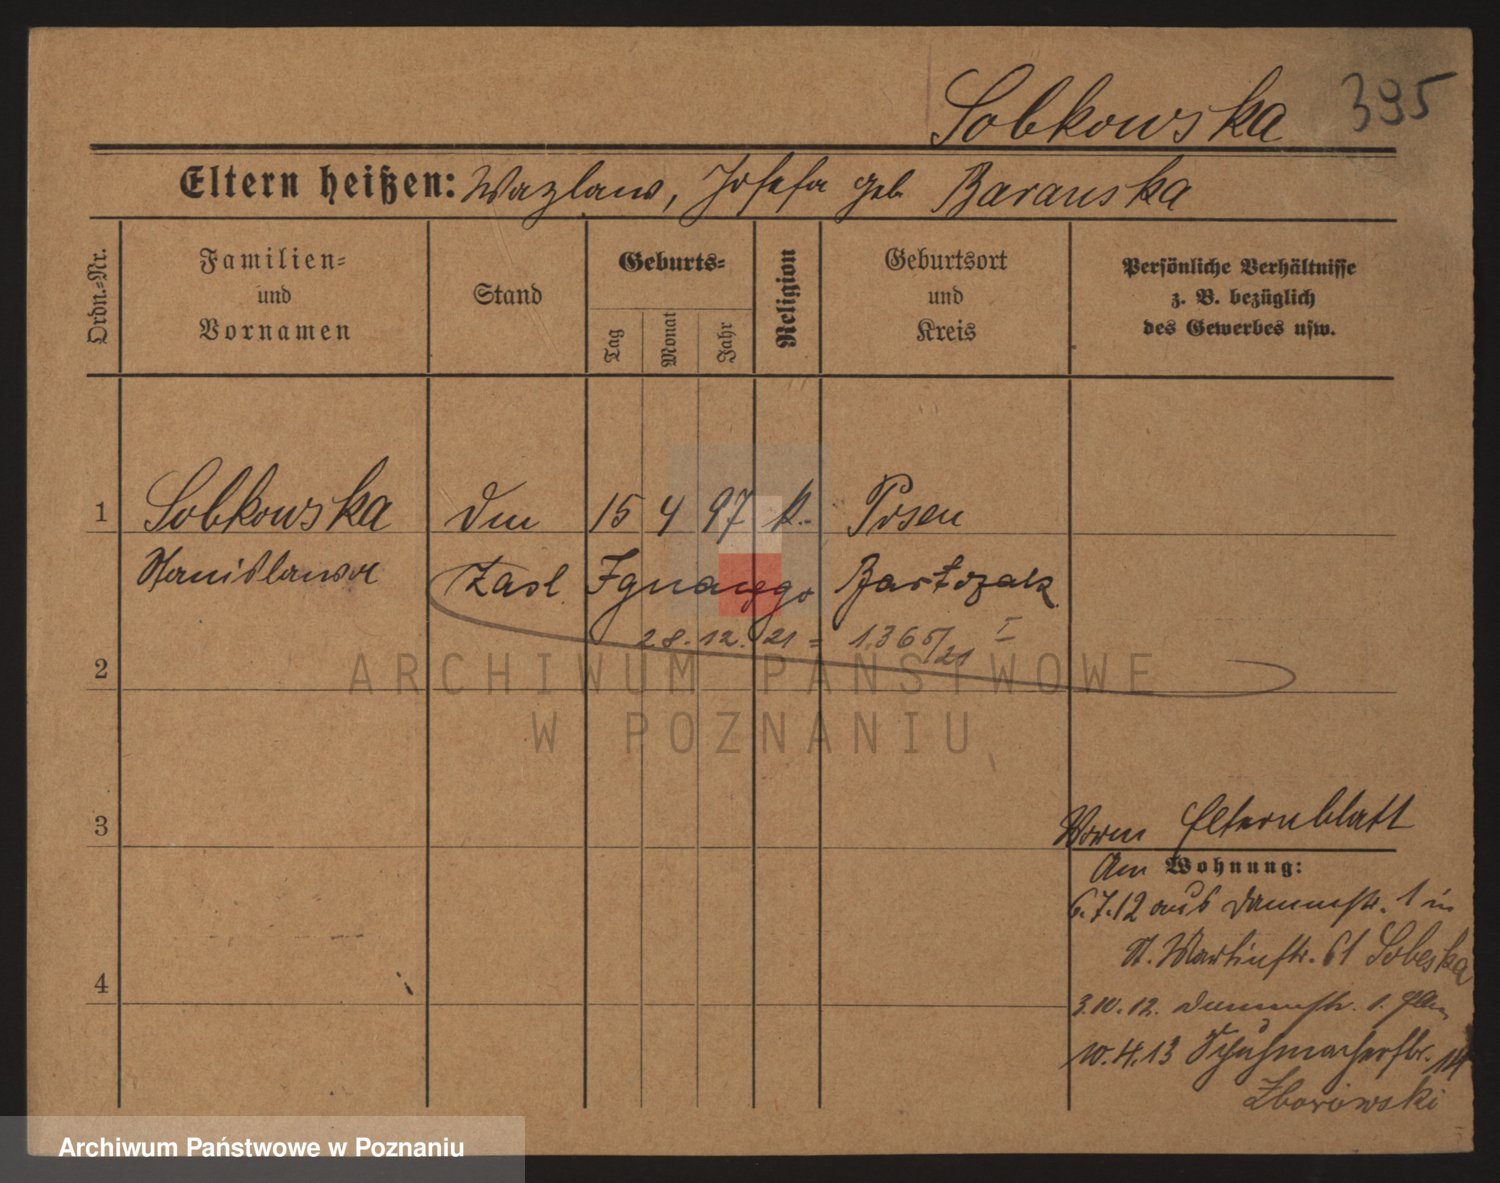 395
Sobkowska
Eltern heißen: Wazlaw, Josefa geb Baranska
Ordn.-Nr.
Familien-
und
Vornamen
Stand
Geburts-
Tag
Monat
Jahr
Religion
Geburtsort
und
Kreis
Persönliche Verhältnisse
z. B. bezüglich
des Gewerbes usw.
1 Sobkowska 15 4 97 k. Posen
Stanislawa Zasl. Ignacego Bartozak
28.12.21 = 1365/21 I
2
ARCHIWUM PAŃSTWOWE
W POZNANIU
3
Elternblatt
Am Wohnung:
6.7.12 aus Dammstr. 1 in
St. Martinstr. 61 Sobeska
3.10.12. Dammstr. 1.
4
10.4.13 Schuhmacherstr. 14
Zborowski
Archiwum Państwowe w Poznaniu